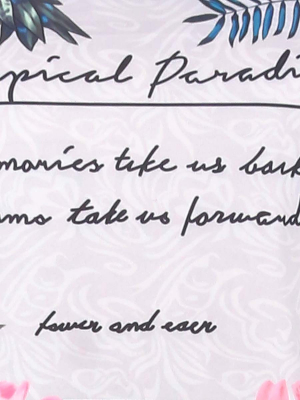 pical Paradi
mories take us back
ams take us forward
fower and eser